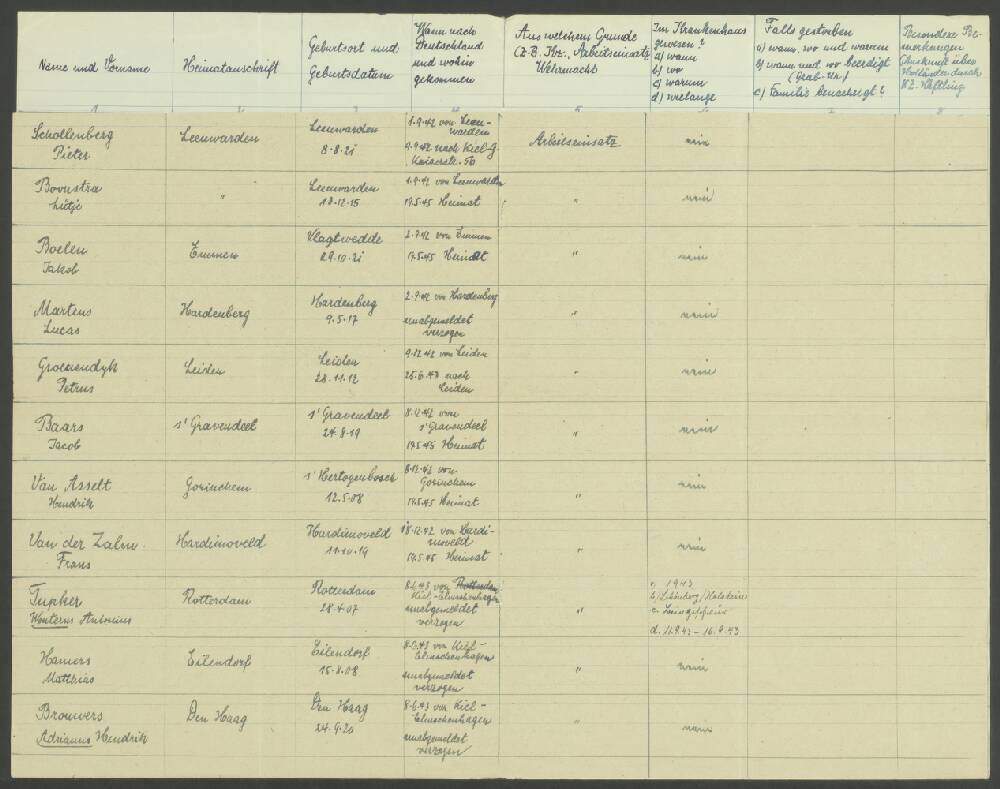 Name und Vorname
Heimatanschrift
Geburtsort und
Geburtsdatum
Wann nach
Deutschland
und woher
gekommen
Aus welchem Grunde
(z.B. Arbeitseinsatz
Wehrmacht
Im Krankenhaus
gewesen?
a) wann
b) wo
c) warum
d) wielange
Falls gestorben
a) wann, wo und warum
b) wann und wo beerdigt
(Grab-Nr)
c) Familie benachrigt?
Besondere Be-
merkungen
Auskunft über
Holländer durch
KZ. Häftling
1 2 3 4 5 6 7 8
Schollenberg
Pieter
Leeuwarden
Leeuwarden
8-8-21
1.9.42 von Leeu-
warden
9.9.42 nach Kiel-G.
Kaiserstr. 50
Arbeitseinsatz
nein
Bouwstra
Lutje
"
Leeuwarden
18-12-15
1.9.42 von Leeuwarden
17.5.45 Heimat
"
nein
Boelen
Jakob
Emmen
Vlagtwedde
29.10.21
2.9.42 von Emmen
17.5.45 Heimat
"
nein
Martens
Lucas
Hardenberg
Hardenberg
9.5.17
2.9.42 von Hardenberg
unabgemeldet
verzogen
"
nein
Groenendyk
Petrus
Leiden
Leiden
28.11.12
9.12.42 von Leiden
25.6.43 nach
Leiden
"
nein
Baars
Jacob
s' Gravendeel
s' Gravendeel
24-8-19
8.12.42 von
s' Gravendeel
17.5.45 Heimat
"
nein
Van Asselt
Hendrik
Gorinchem
s' Hertogenbosch
12.5.08
8.12.42 von
Gorinchem
17.5.45 Heimat
"
nein
Van der Zalm
Frans
Hardinxveld
Hardinxveld
11-10-19
18.12.42 von Hardi-
nxveld
17.5.45 Heimat
"
nein
Tupker
Wouterus Antonius
Rotterdam
Rotterdam
28-4-07
8.6.43 von Rotterdam
Kiel-Elmschenhagen
unabgemeldet
verzogen
"
a. 1943
b) Schönberg/Holstein
c.
d. 11.9.43 - 16.9.43
Hamers
Matthias
Eilendorf
Eilendorf
15-8-08
8.6.43 von Kiel-
Elmschenhagen
unabgemeldet
verzogen
"
nein
Brouwers
Adrianus Hendrik
Den Haag
Den Haag
24.9.20
8.6.43 von Kiel-
Elmschenhagen
unabgemeldet
verzogen
"
nein